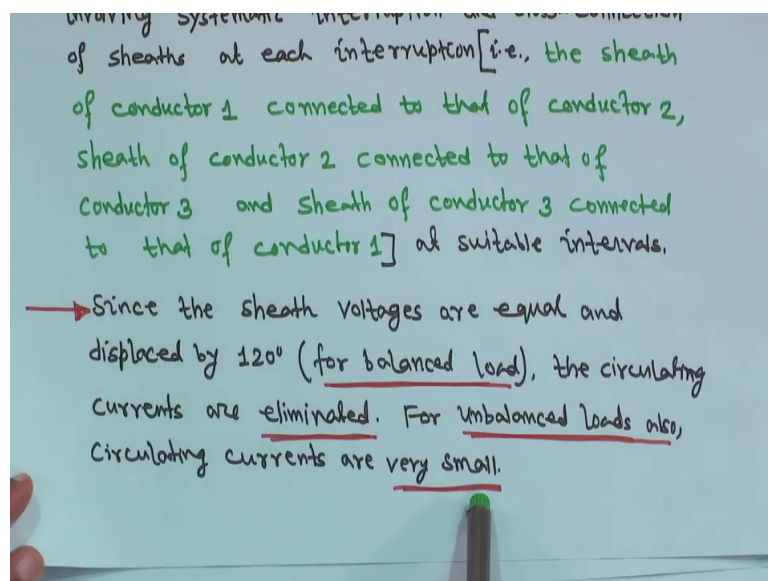 involving systematic interruption and cross-connection
of sheaths at each interruption [i.e., the sheath
of conductor 1 connected to that of conductor 2,
sheath of conductor 2 connected to that of
conductor 3 and sheath of conductor 3 connected
to that of conductor 1] at suitable intervals.
Since the sheath voltages are equal and
displaced by 120° (for balanced load), the circulating
currents are eliminated. For unbalanced loads also,
circulating currents are very small.